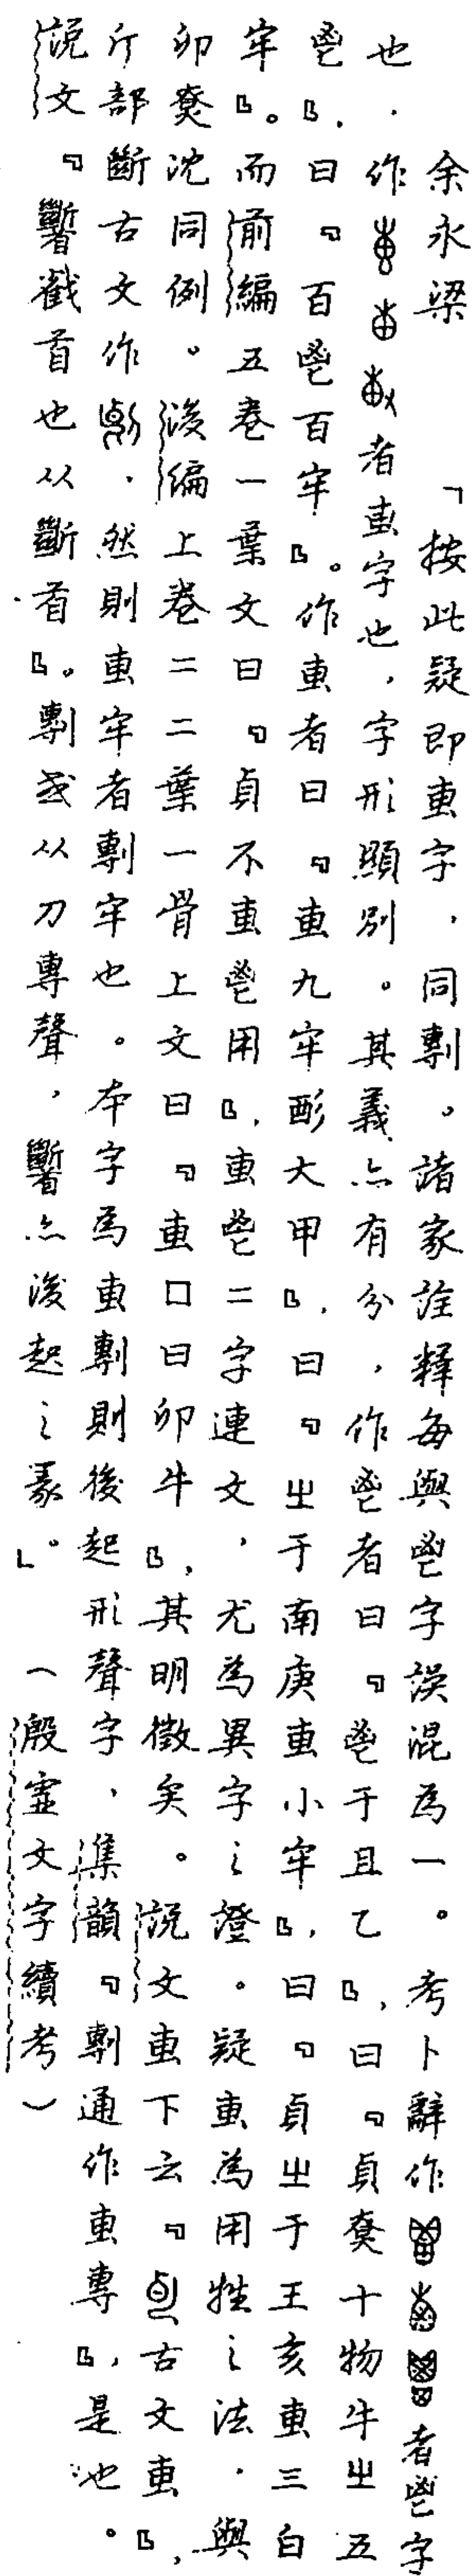 余永梁　「按此疑即叀字，同剸。諸家詮釋每與鬯字誤混為一。考卜辭作者鬯字
也．作者叀字也，字形顯別。其義亦有分，作鬯者曰『鬯于且乙』，曰『貞㞢十物牛㞢五
鬯』．曰『百鬯百牢』。作叀者曰『叀九牢酌大甲』，曰『㞢于南庚叀小牢』，曰『貞㞢于王亥叀三白
牢』。而前編五卷一葉文曰『貞不叀鬯用』，叀鬯二字連文，尤為異字之證。疑叀為用牲之法．與
卯㞢沈同例。後編上卷二二葉一骨上文曰『叀口曰卯牛』，其明徵矣。說文叀下云『古文叀』，
斤部斷古文作．然則叀牢者剸牢也。本字為叀剸則後起形聲字，集韻『剸通作叀專』，是也。
說文『㔁截首也从斷首』。剸或从刀專聲，亦後起之彖」。（殷虛文字續考）